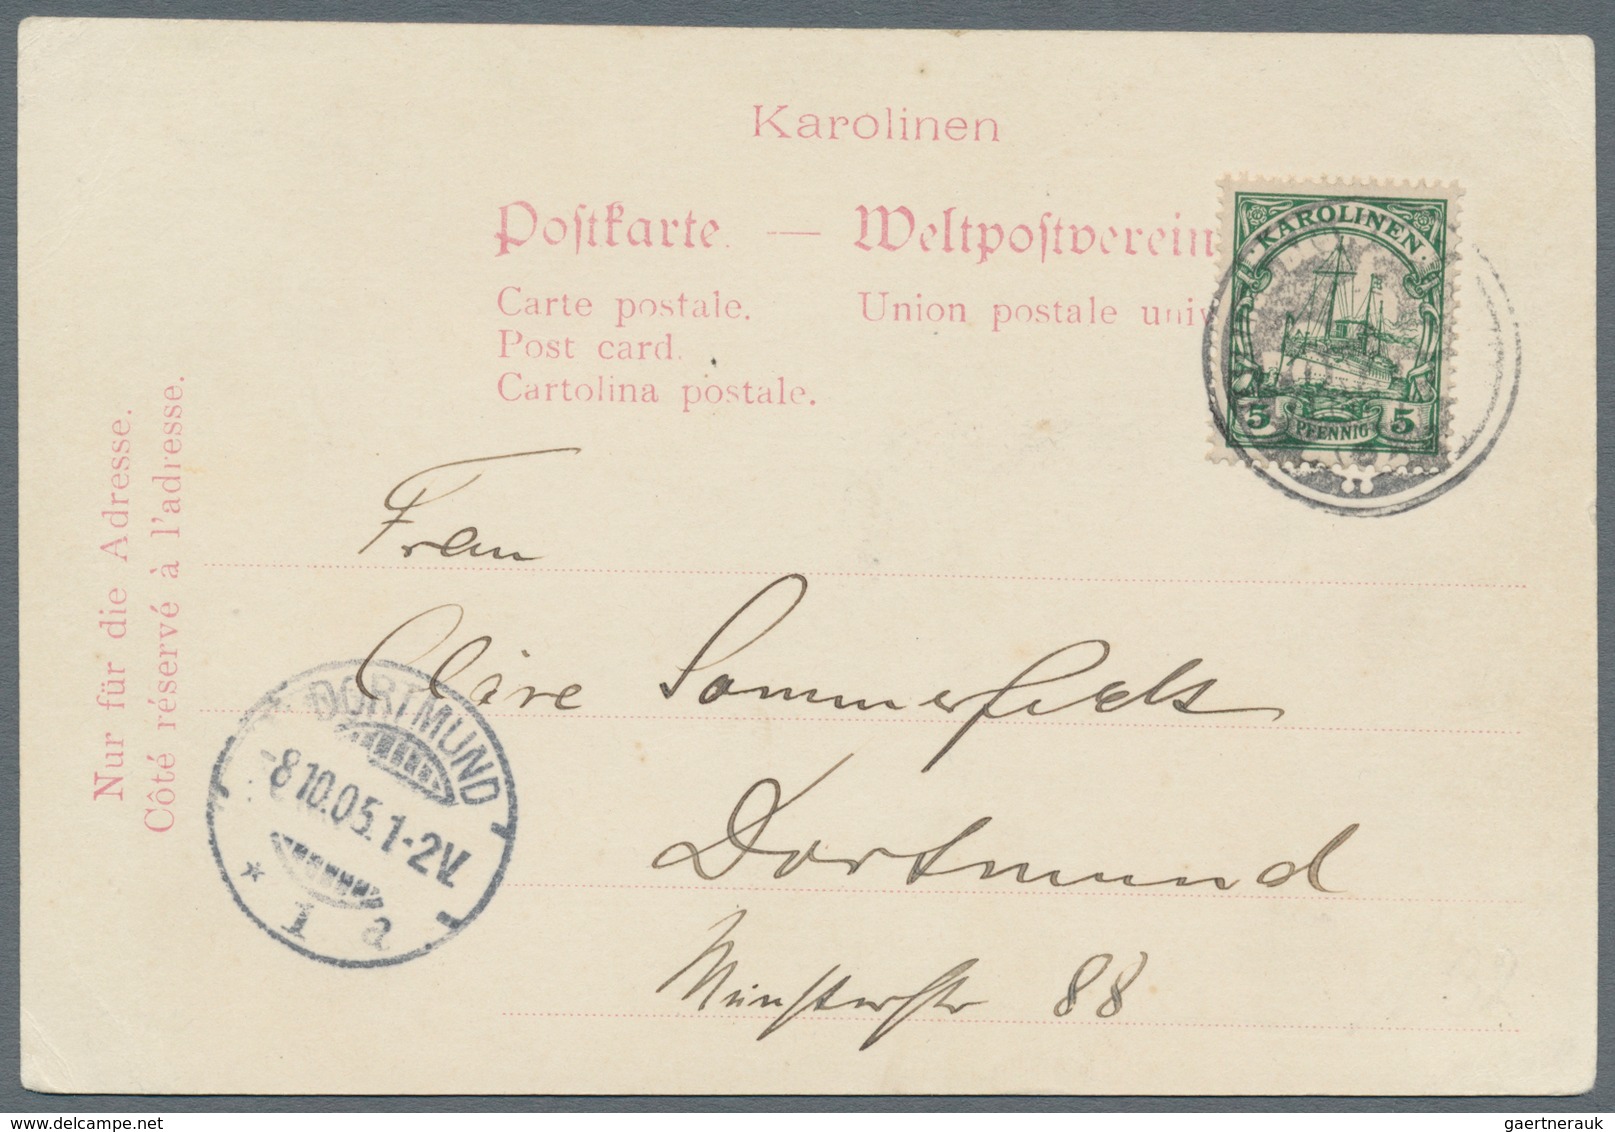 Karolinen
Postkarte. — Weltpostverein
Carte postale. Union postale univ
Post card.
Cartolina postale.
Nur für die Adresse.
Côté réservé à l'adresse.
KAROLINEN
5 PFENNIG 5
Frau
Cläre Sommerfeldt
Dortmund
Münsterstr 88
DORTMUND
-8.10.05.1-2V.
* 1 a
gaertnerauk @ delcampe.net